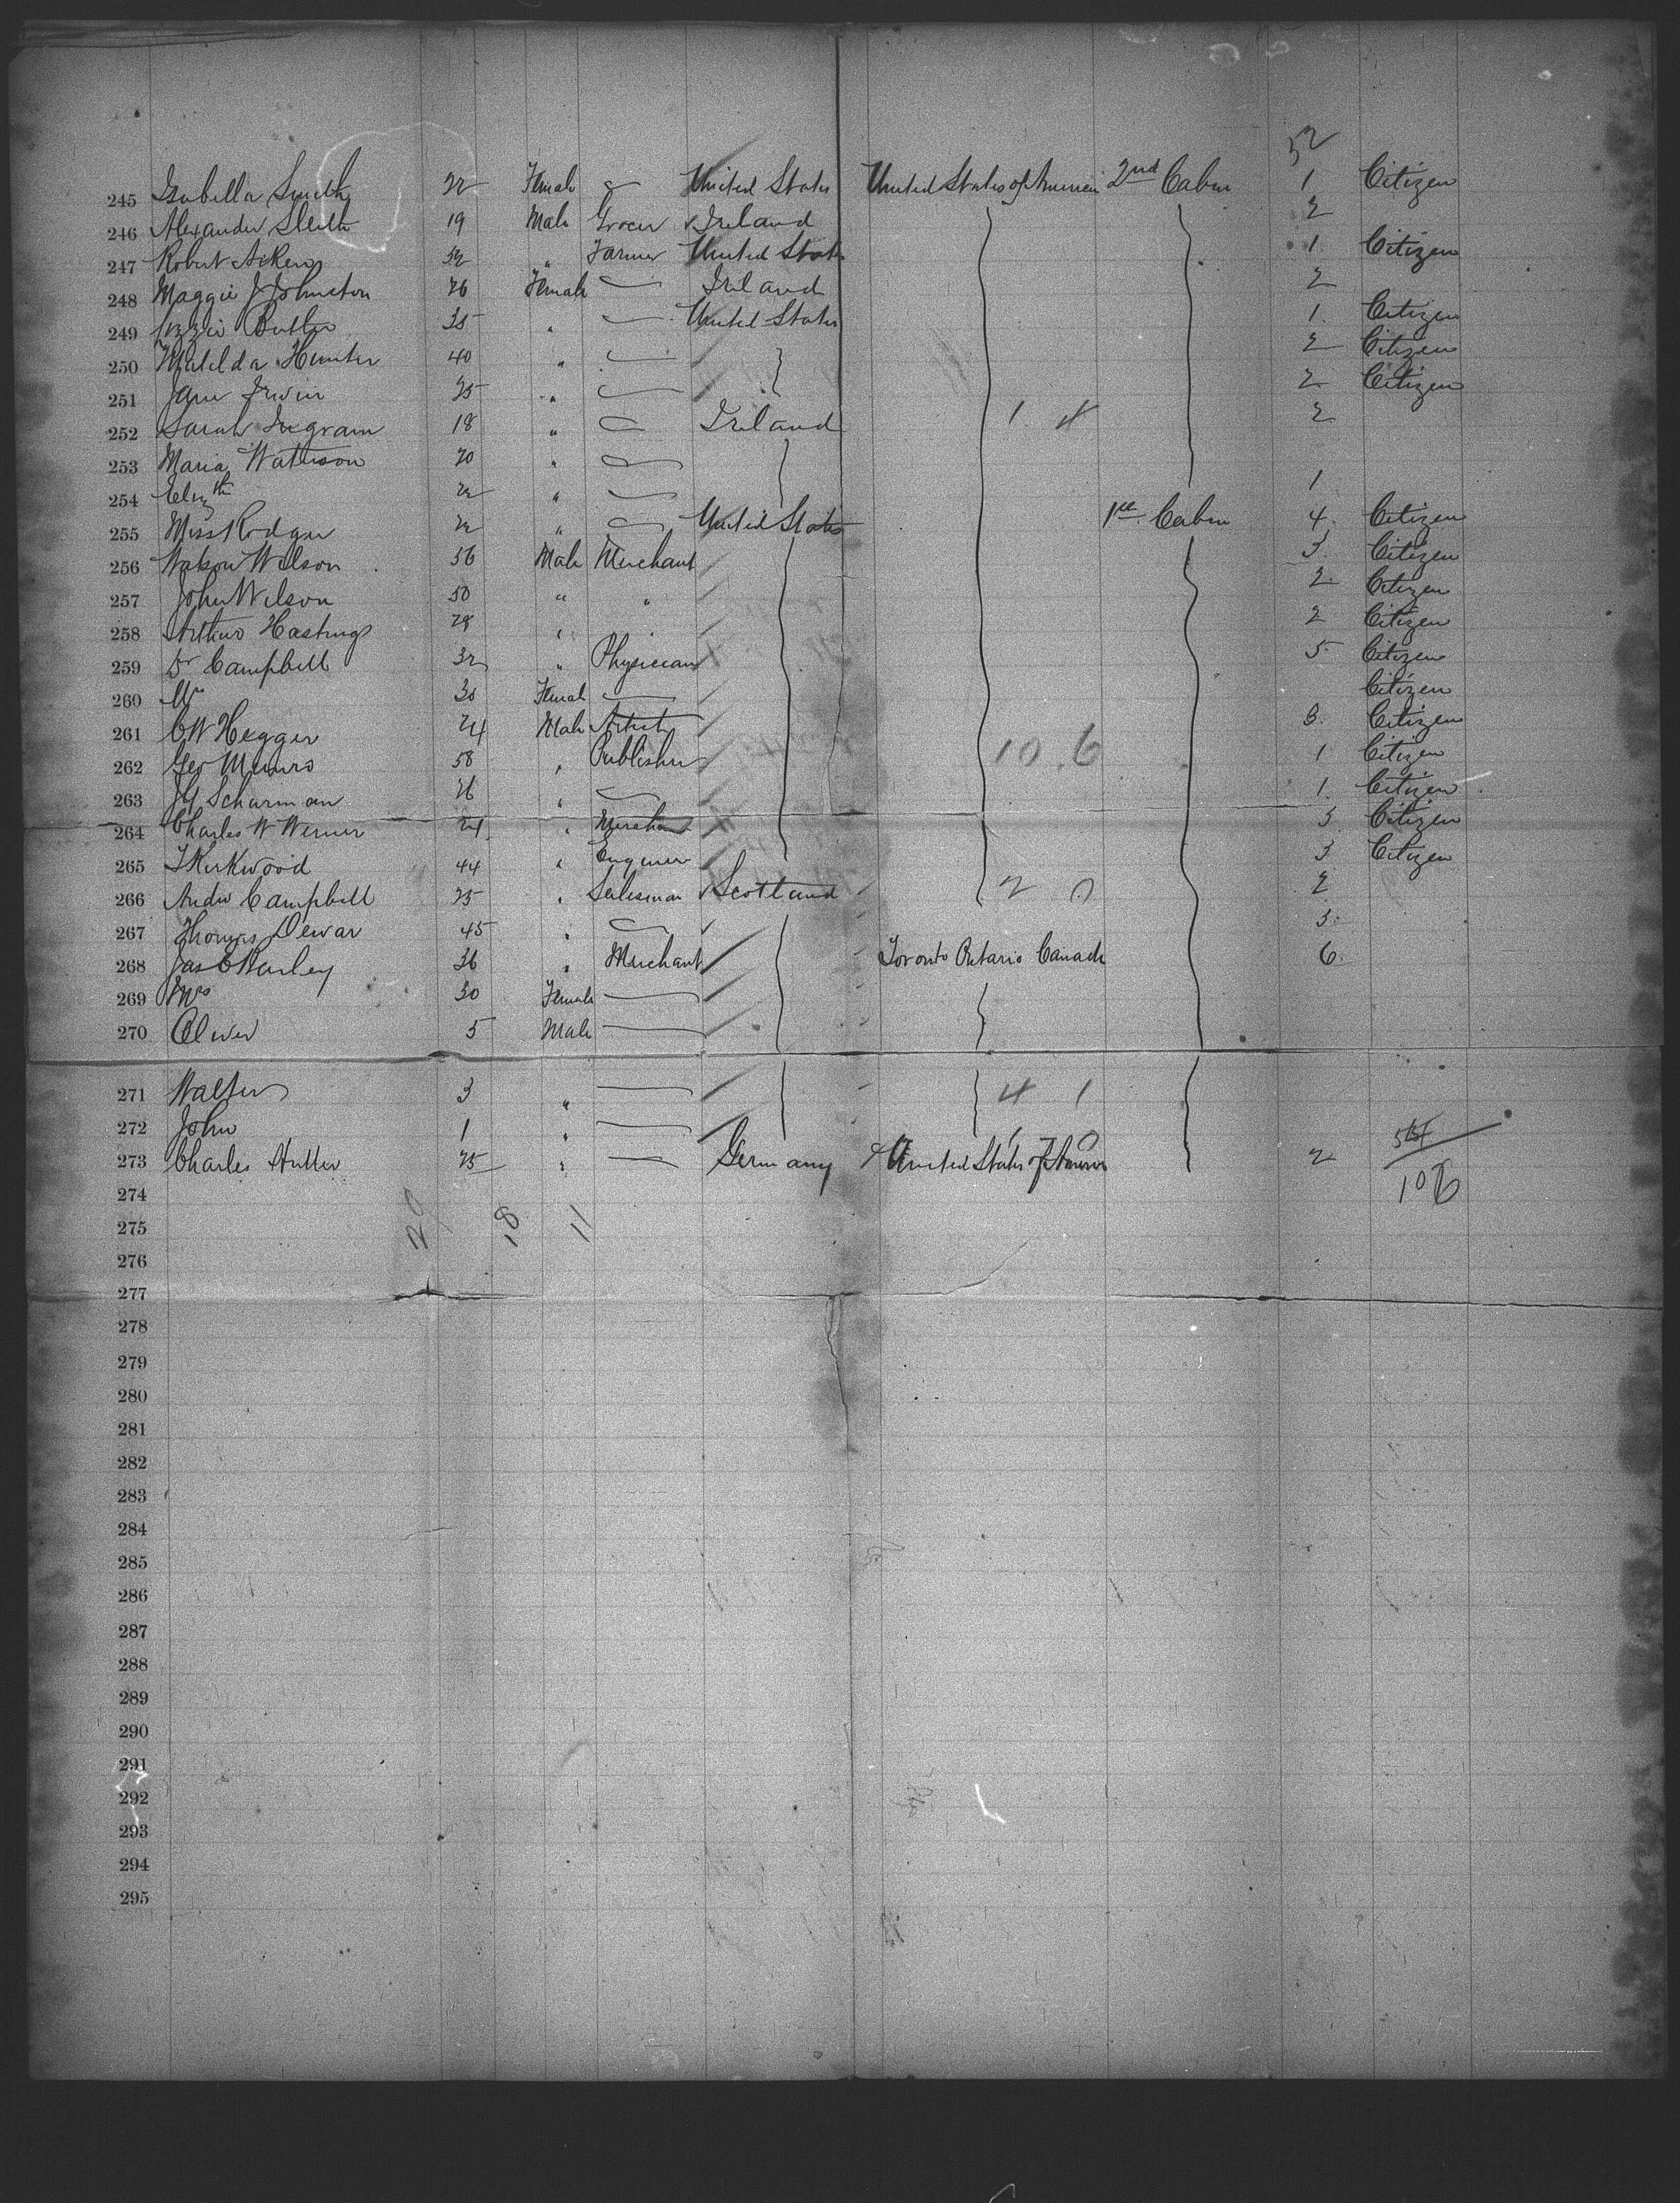 52
245 Isabella Smith 22 Female United States United States of America 2nd Cabin 1 Citizen
246 Alexander Sleith 19 Male Grocer Ireland 2
247 Robert Aikens 52 " Farmer United States 1 Citizen
248 Maggie J Johnston 26 Female Ireland 2
249 Lizzie Butler 35 " United States 1. Citizen
250 Matilda Hunter 40 " 2 Citizen
251 Jane Irwin 25 " 2 Citizen
252 Sarah Ingram 18 " Ireland 1. 4 2
253 Maria Watterson 20 "
254 Elizth 22 " 1
255 Miss Rodger 22 " United States 1st Cabin 4. Citizen
256 Watson Wilson 56 Male Merchant 3. Citizen
257 John Wilson 50 " " 2. Citizen
258 Arthur Hastings 28 " 2 Citizen
259 Dr Campbell 32 " Physician 5. Citizen
260 30 Female Citizen
261 CW Hegger 24 Male Artist 3. Citizen
262 Geo Munro 58 " Publisher 10. 6 1 Citizen
263 JG Schurman 26 " 1. Citizen
264 Charles W Werner 24 " Merchant 3 Citizen
265 T Kirkwood 44 " Engineer 3 Citizen
266 Andw Campbell 25 " Salesman Scotland 2 0 2
267 Thomas Dewar 45 " 3.
268 Jas C Bailey 36 " Merchant Toronto Ontario Canada 6.
269 Mrs 30 Female
270 Oliver 5 Male
271 Walter 3 " 4 1
272 John 1 "
273 Charles Hutter 25 " Germany United States of America 2
106
274
29 18 11
275
276
277
278
279
280
281
282
283
284
285
286
287
288
289
290
291
292
293
294
295